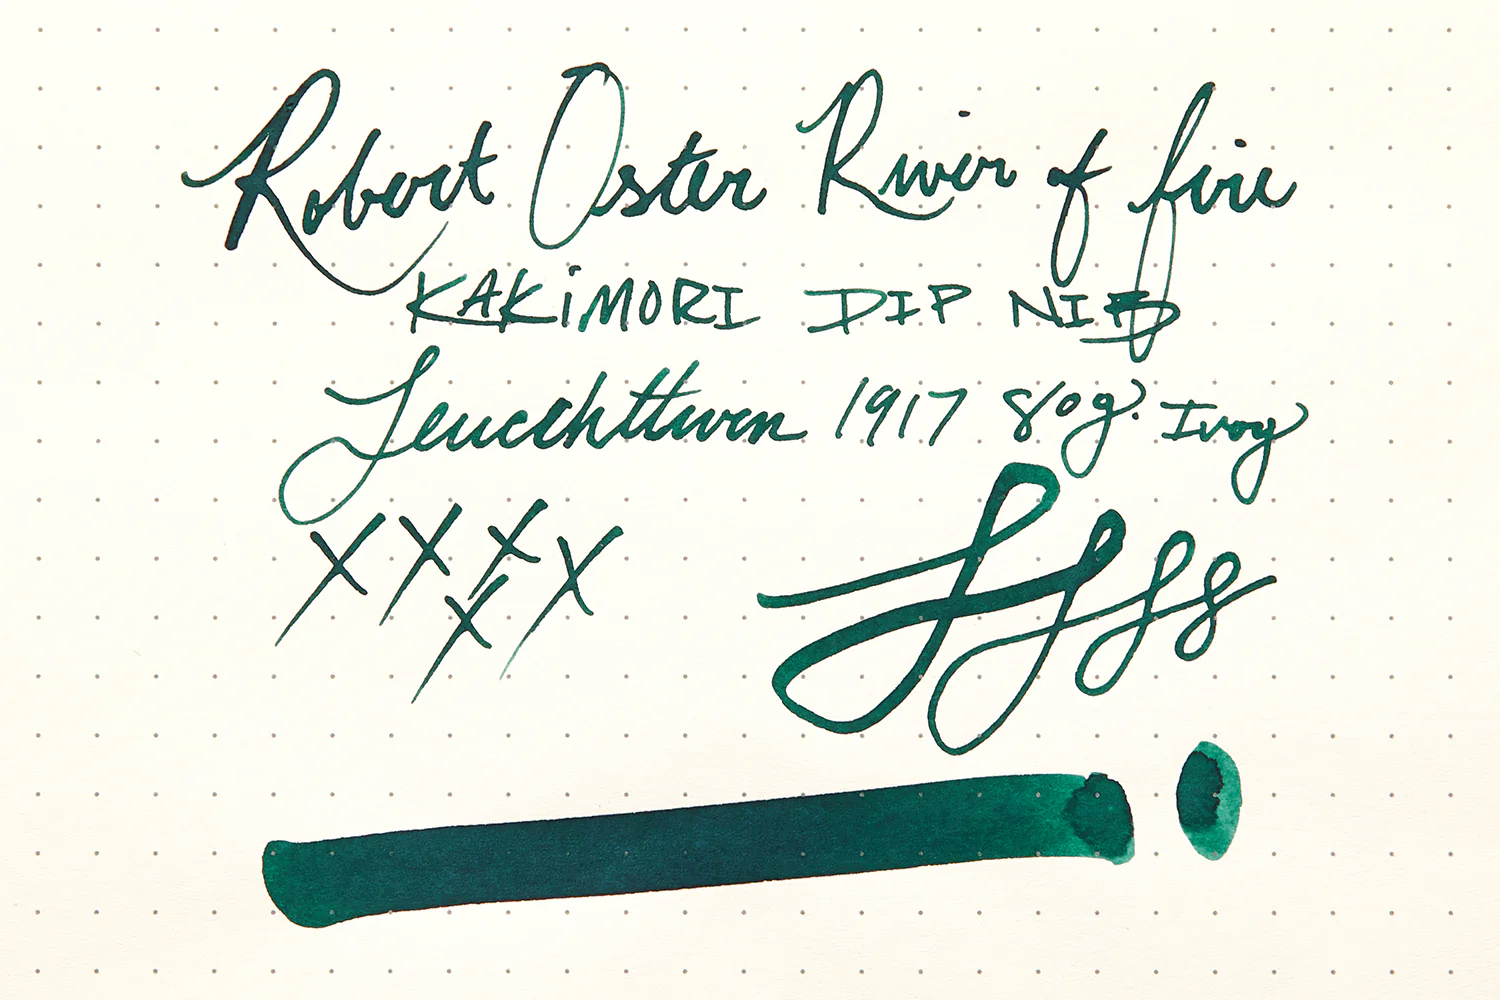 Robert Oster River of fire
KAKiMORI DIP NIB
Leuchtturm 1917 80g. Ivoy
XXXXX